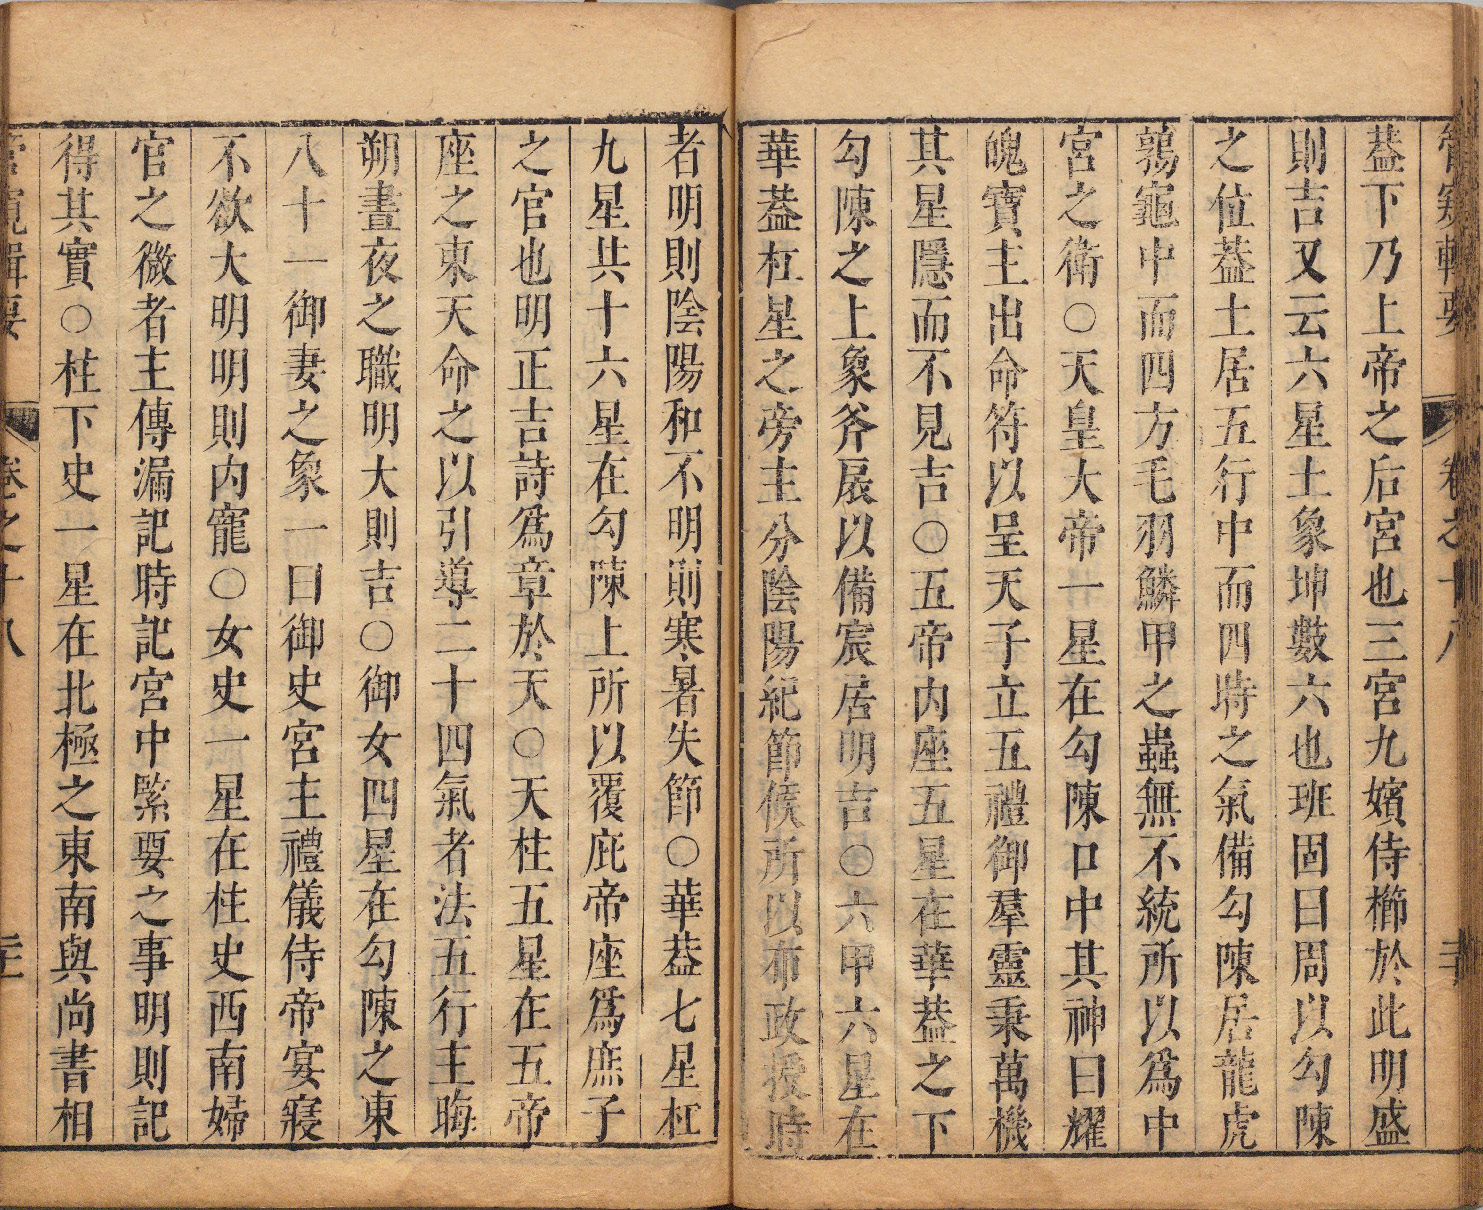 管窺輯要 卷之十八
葢下乃上帝之后宮也三宮九嬪侍櫛於此明盛
則吉又云六星土象坤數六也班固曰周以勾陳
之位葢土居五行中而四時之氣備勾陳居龍虎
鶉龜中而四方毛羽鱗甲之蟲無不統所以爲中
宮之衛○天皇大帝一星在勾陳口中其神曰耀
魄寶主出命符以呈天子立五禮御羣靈秉萬機
其星隱而不見吉○五帝内座五星在華葢之下
勾陳之上象斧扆以備宸居明吉○六甲六星在
華葢杠星之旁主分陰陽紀節候所以布政授時
者明則陰陽和不明則寒暑失節○華葢七星杠
九星共十六星在勾陳上所以覆庇帝座爲庶子
之官也明正吉詩爲章於天○天柱五星在五帝
座之東天命之以引導二十四氣者法五行主晦
朔晝夜之職明大則吉○御女四星在勾陳之東
八十一御妻之象一曰御史宮主禮儀侍帝宴寢
不欲大明明則内寵○女史一星在柱史西南婦
官之微者主傳漏記時記宮中緊要之事明則記
得其實○柱下史一星在北極之東南與尚書相
管窺輯要 卷之十八